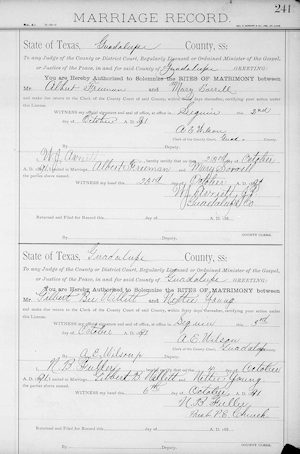 241
MARRIAGE RECORD.
State of Texas, Guadalupe County, ss:
To any Judge of the County or District Court, Regularly Licensed or Ordained Minister of the Gospel,
or Justice of the Peace, in and for said County of Guadalupe GREETING:
You are Hereby Authorized to Solemnize the RITES OF MATRIMONY between
Mr. Albert Freeman and Mary Sorrell
and make due return to the Clerk of the County Court of said County, within days thereafter, certifying your action under
this License.
WITNESS my official signature and seal of office, at office in Seguin this 22nd
day of October A. D. 91
A. E. Wilson
Clerk of the County Court, Guad. Co.
By Deputy.
I, hereby certify that on the 23rd day of October
A. D. 91, united in Marriage Albert Freeman and Mary Sorrell
the parties above named.
WITNESS my hand this 23rd day of October A. D. 91
Guadalupe Co
Returned and Filed for Record this day of A. D. 18
COUNTY CLERK.
By Deputy.
State of Texas, Guadalupe County, ss:
To any Judge of the County or District Court, Regularly Licensed or Ordained Minister of the Gospel,
or Justice of the Peace, in and for said County of Guadalupe GREETING:
You are Hereby Authorized to Solemnize the RITES OF MATRIMONY between
Mr. and Nettie Young
and make due return to the Clerk of the County Court of said County, within days thereafter, certifying your action under
this License.
WITNESS my official signature and seal of office, at office in Seguin this
day of October A. D. 91
A. E. Wilson
Clerk of the County Court, Guadalupe
By A. E. Wilson Deputy.
I, N. B. Fuller hereby certify that on the day of October
A. D. 91, united in Marriage and Nettie Young
the parties above named.
WITNESS my hand this 6th day of October A. D. 91
N. B. Fuller
Church
Returned and Filed for Record this day of A. D. 18
COUNTY CLERK.
By Deputy.